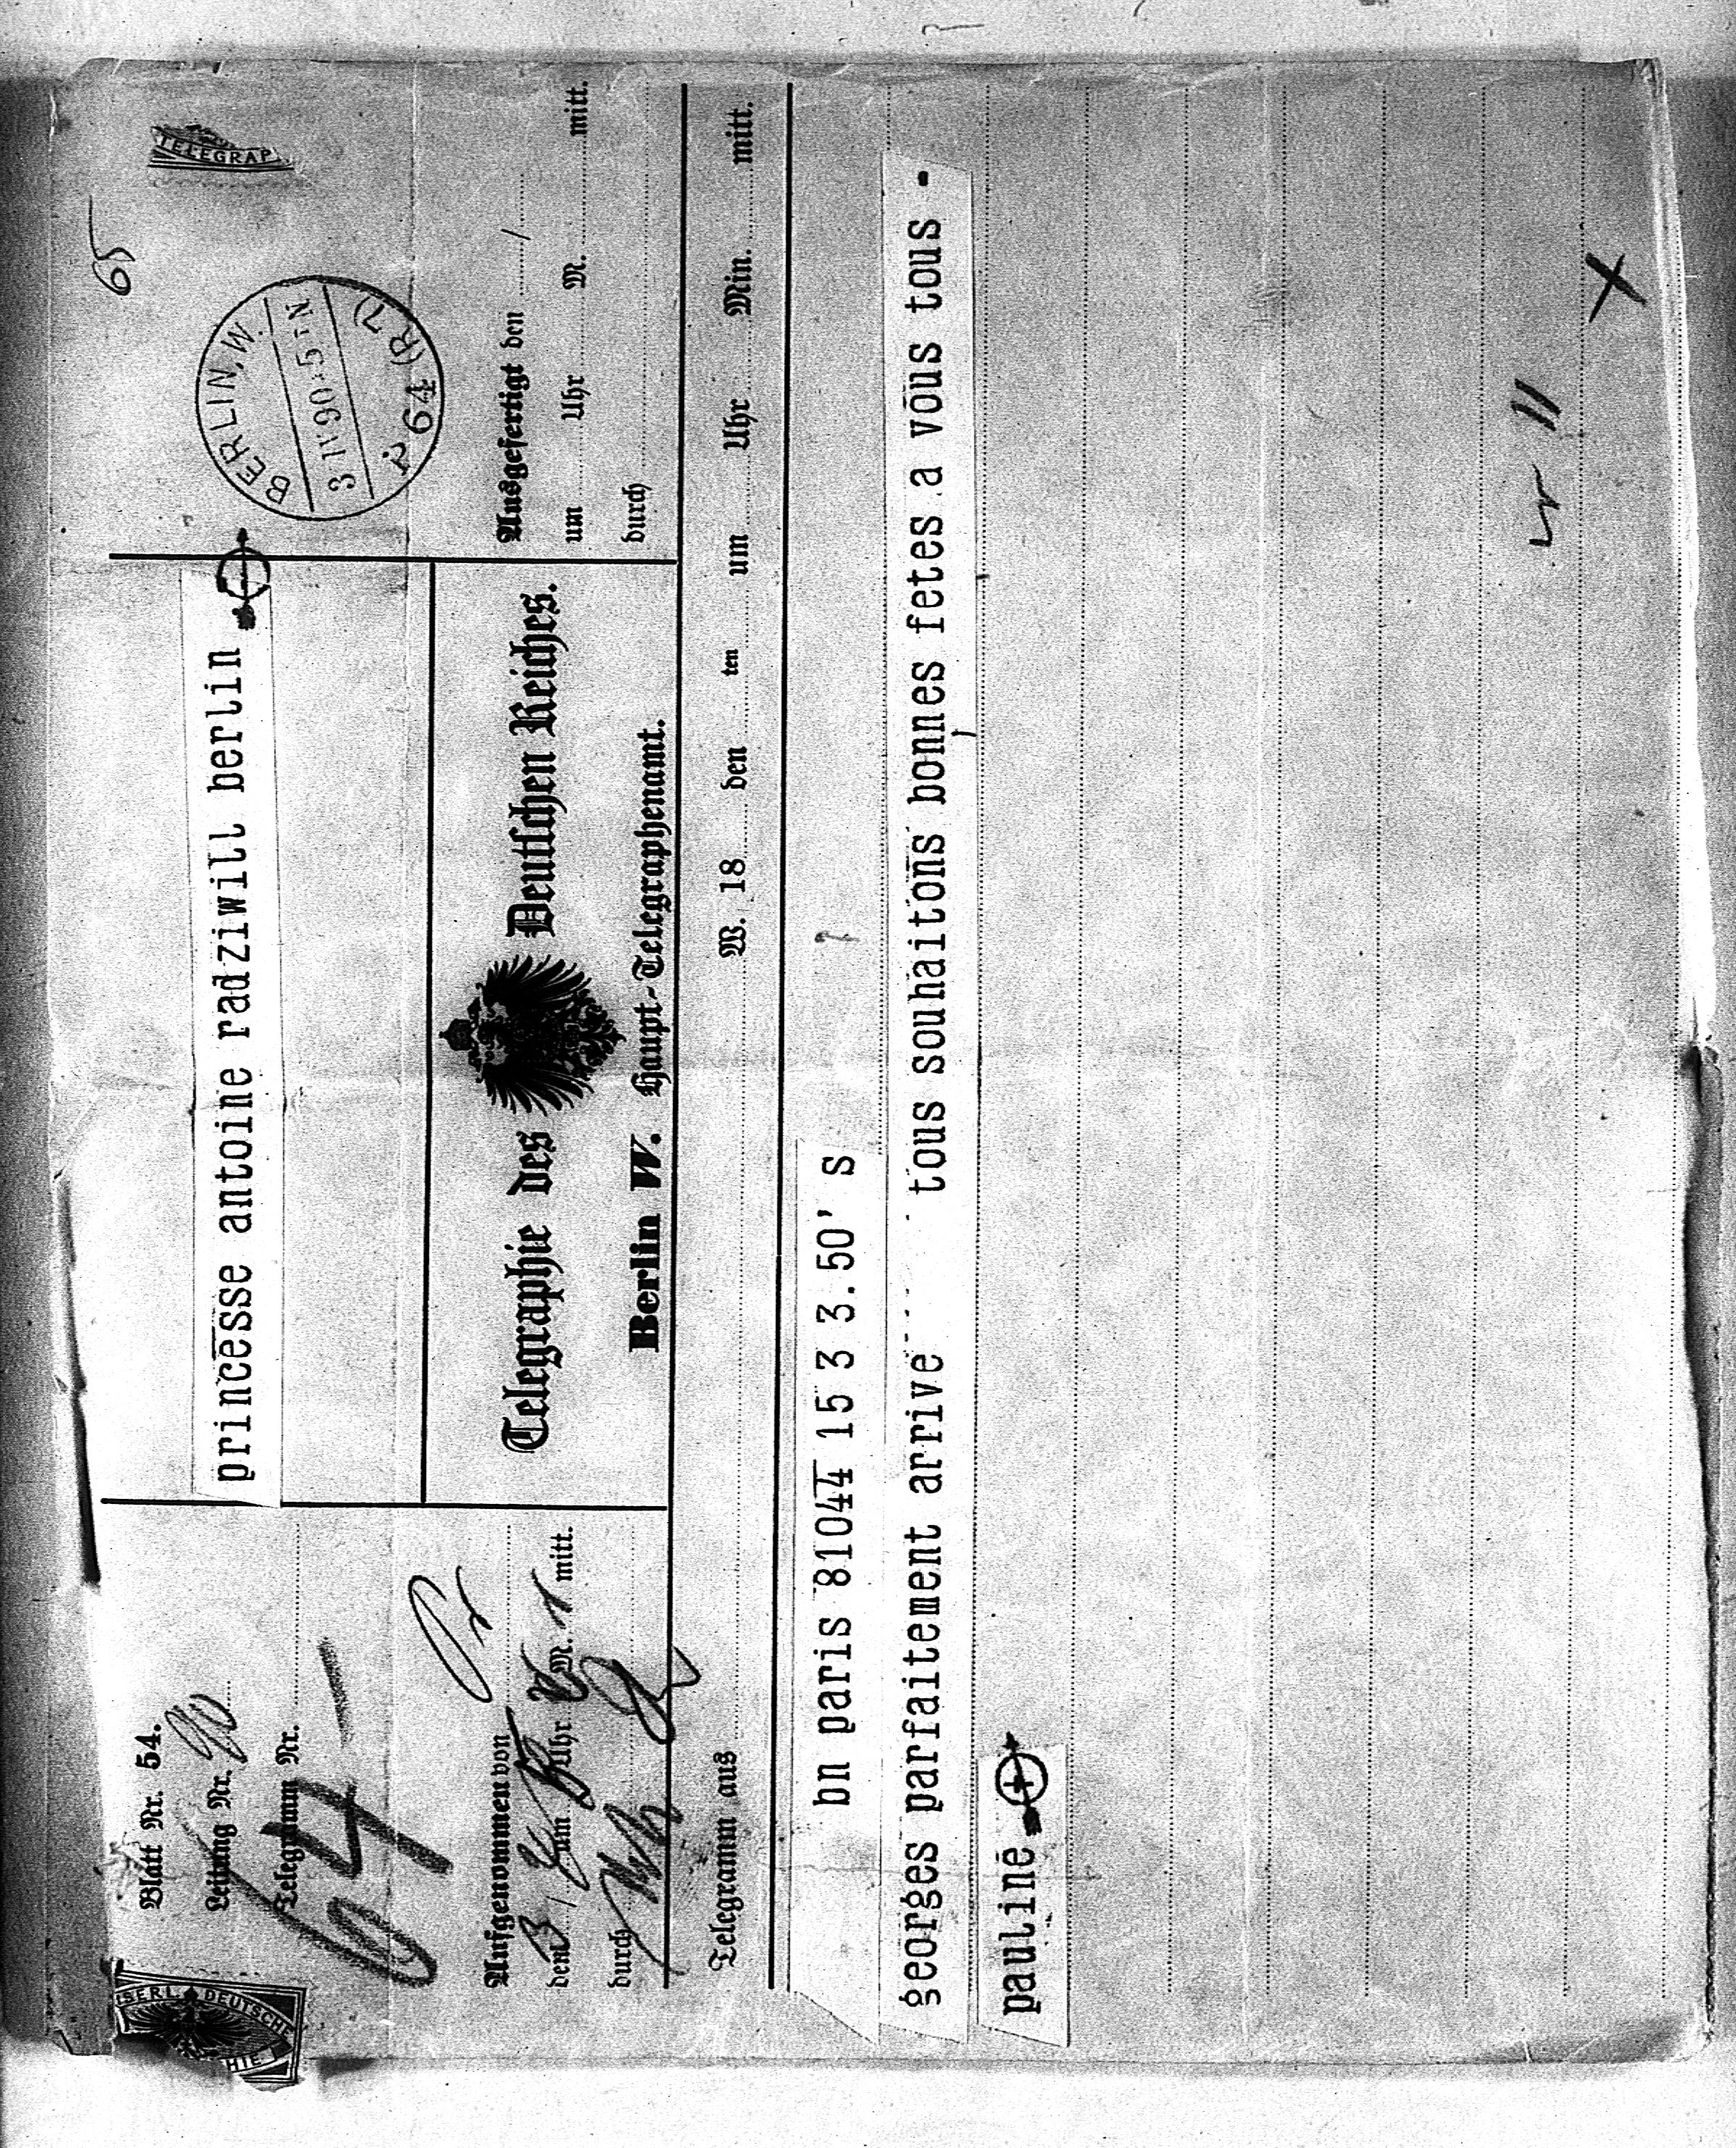 65
TELEGRAP
ISERL. DEUTSCHE
HIE
Blatt Nr. 54.
Leitung Nr.
Telegramm Nr.
64
princesse antoine radziwill berlin
BERLIN, W.
P 64 (R 7)
Aufgenommen von
den 3 / um Uhr M. mitt.
durch
Telegraphie des Deutschen Reiches.
Berlin W. Haupt-Telegraphenamt.
Ausgefertigt den /
um Uhr M. mitt.
durch
Telegramm aus W. 18 den ten um Uhr Min. mitt.
bn paris 81044 15 3 3.50' s
georges parfaitement arrive tous souhaitons bonnes fetes a vous tous -
pauline